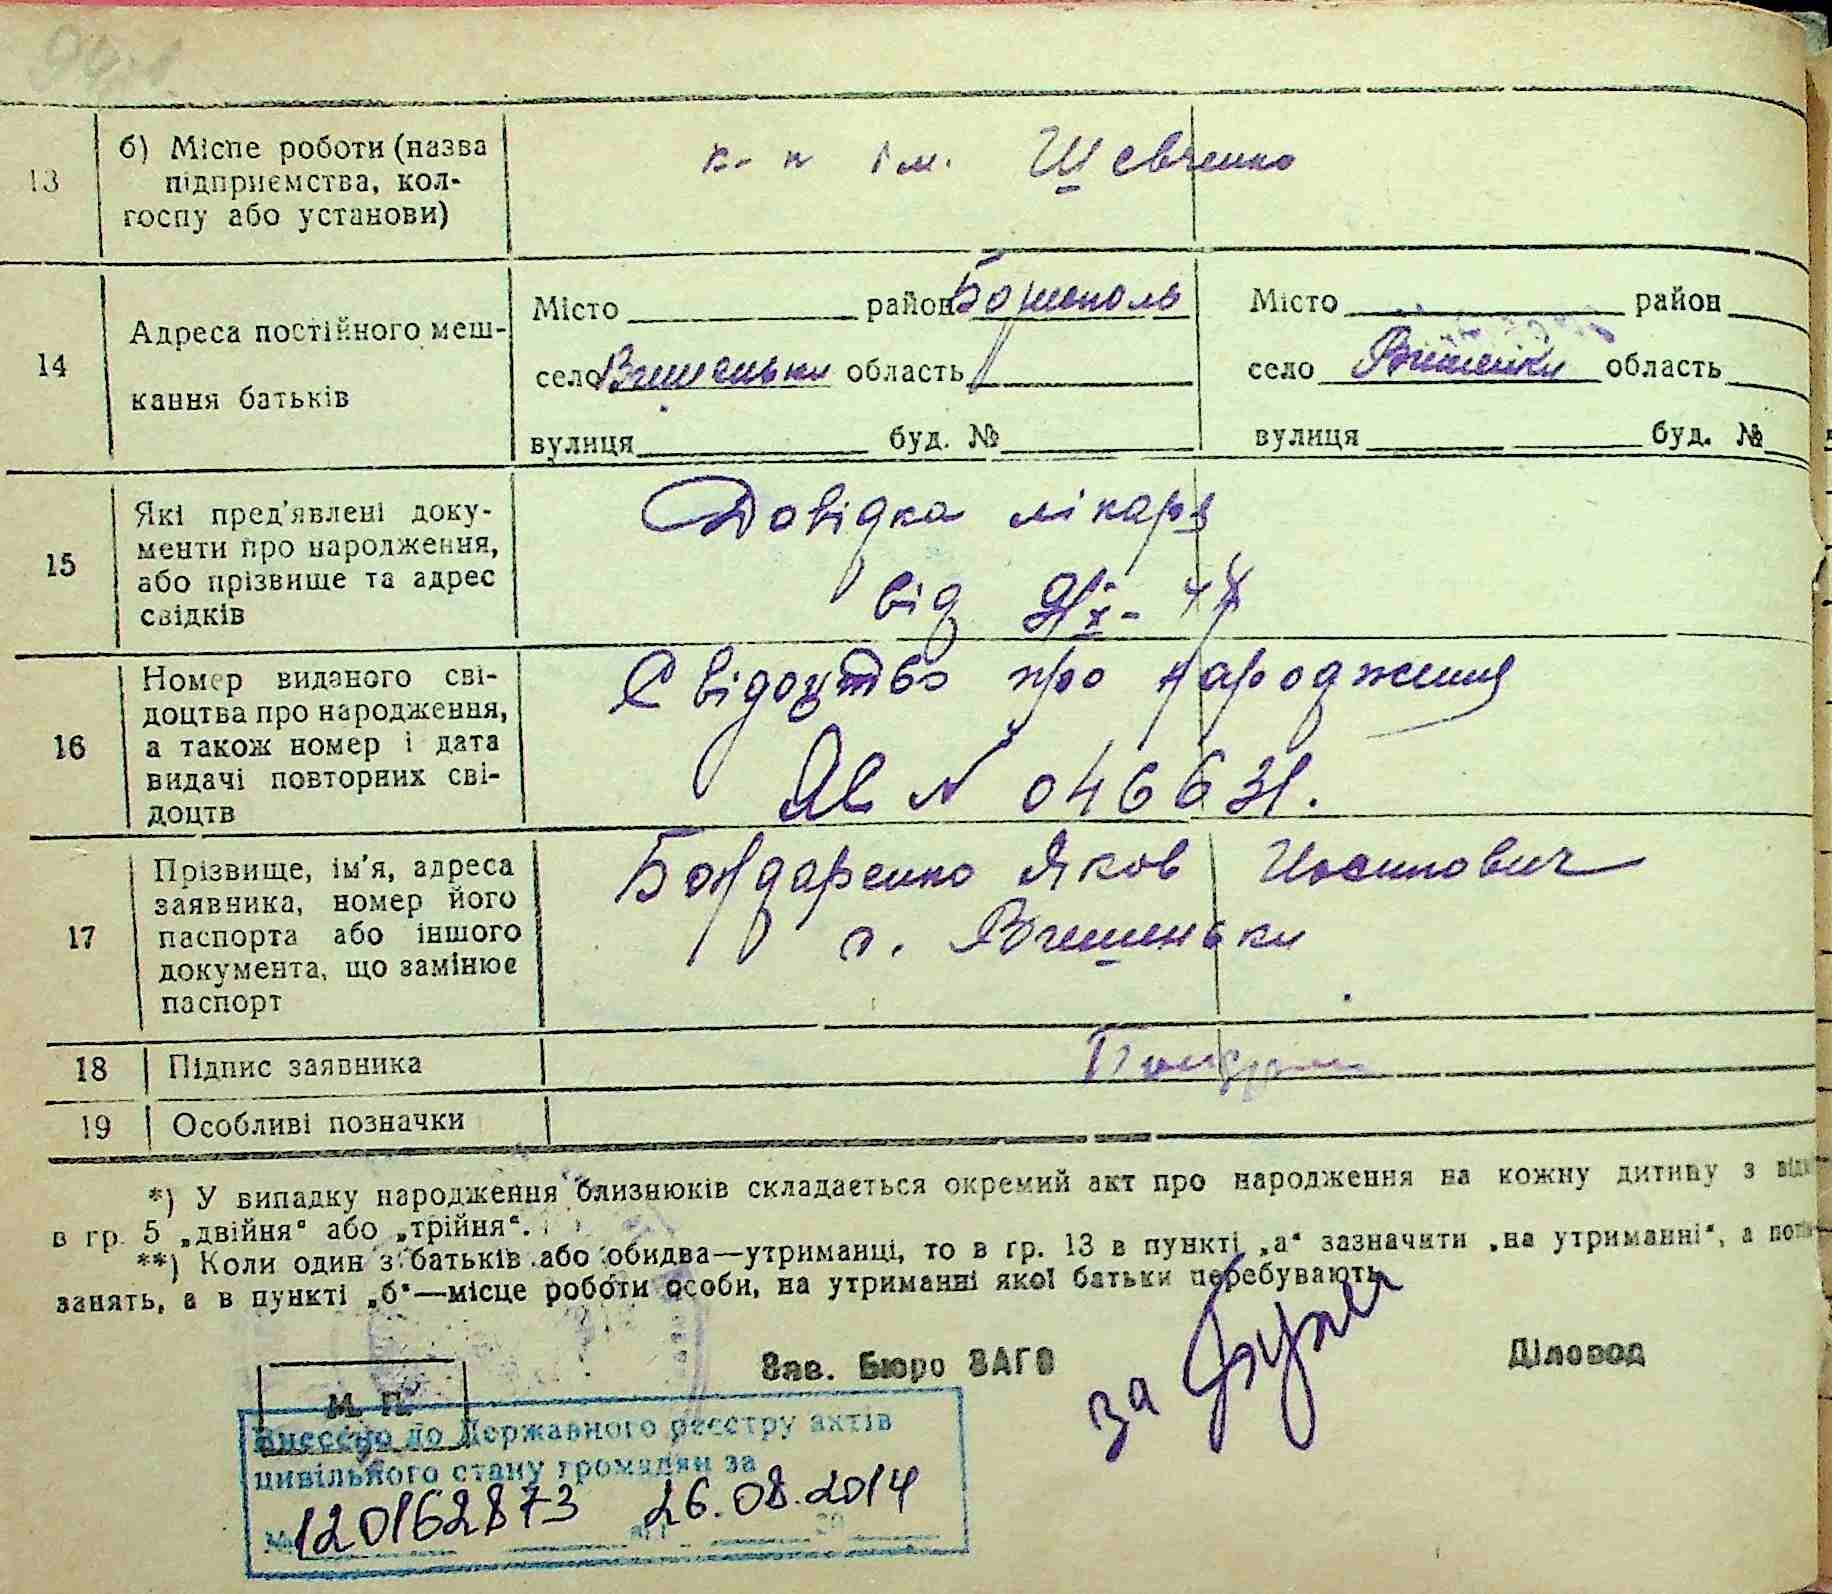 13 б) Місце роботи (назва
підприємства, кол-
госпу або установи)
к-п ім. Шевченко
14 Адреса постійного меш-
кання батьків
Місто район Бориспіль Місто район
село Вишеньки область село Вишеньки область
вулиця буд. № вулиця буд. №
15 Які пред'явлені доку-
менти про народження,
або прізвище та адрес
свідків
Довідка лікаря
від
16 Номер виданого сві-
доцтва про народження,
а також номер і дата
видачі повторних сві-
доцтв
Свідоцтво про народження
ЯЄ № 046631.
17 Прізвище, ім'я, адреса
заявника, номер його
паспорта або іншого
документа, що замінює
паспорт
Бондаренко Яков Иосипович
с. Вишеньки
18 Підпис заявника
19 Особливі позначки
*) У випадку народження близнюків складається окремий акт про народження на кожну дитину з
в гр. 5 „двійня“ або „трійня“.
**) Коли один з батьків або обидва—утриманці, то в гр. 13 в пункті „а“ зазначити „на утриманні“, а
занять, а в пункті „б“—місце роботи особи, на утриманні якої батьки перебувають
Зав. Бюро ЗАГС за Діловод
М. П.
Внесено до Державного реєстру актів
цивільного стану громадян за
№ 120162873 від 26.08.2014